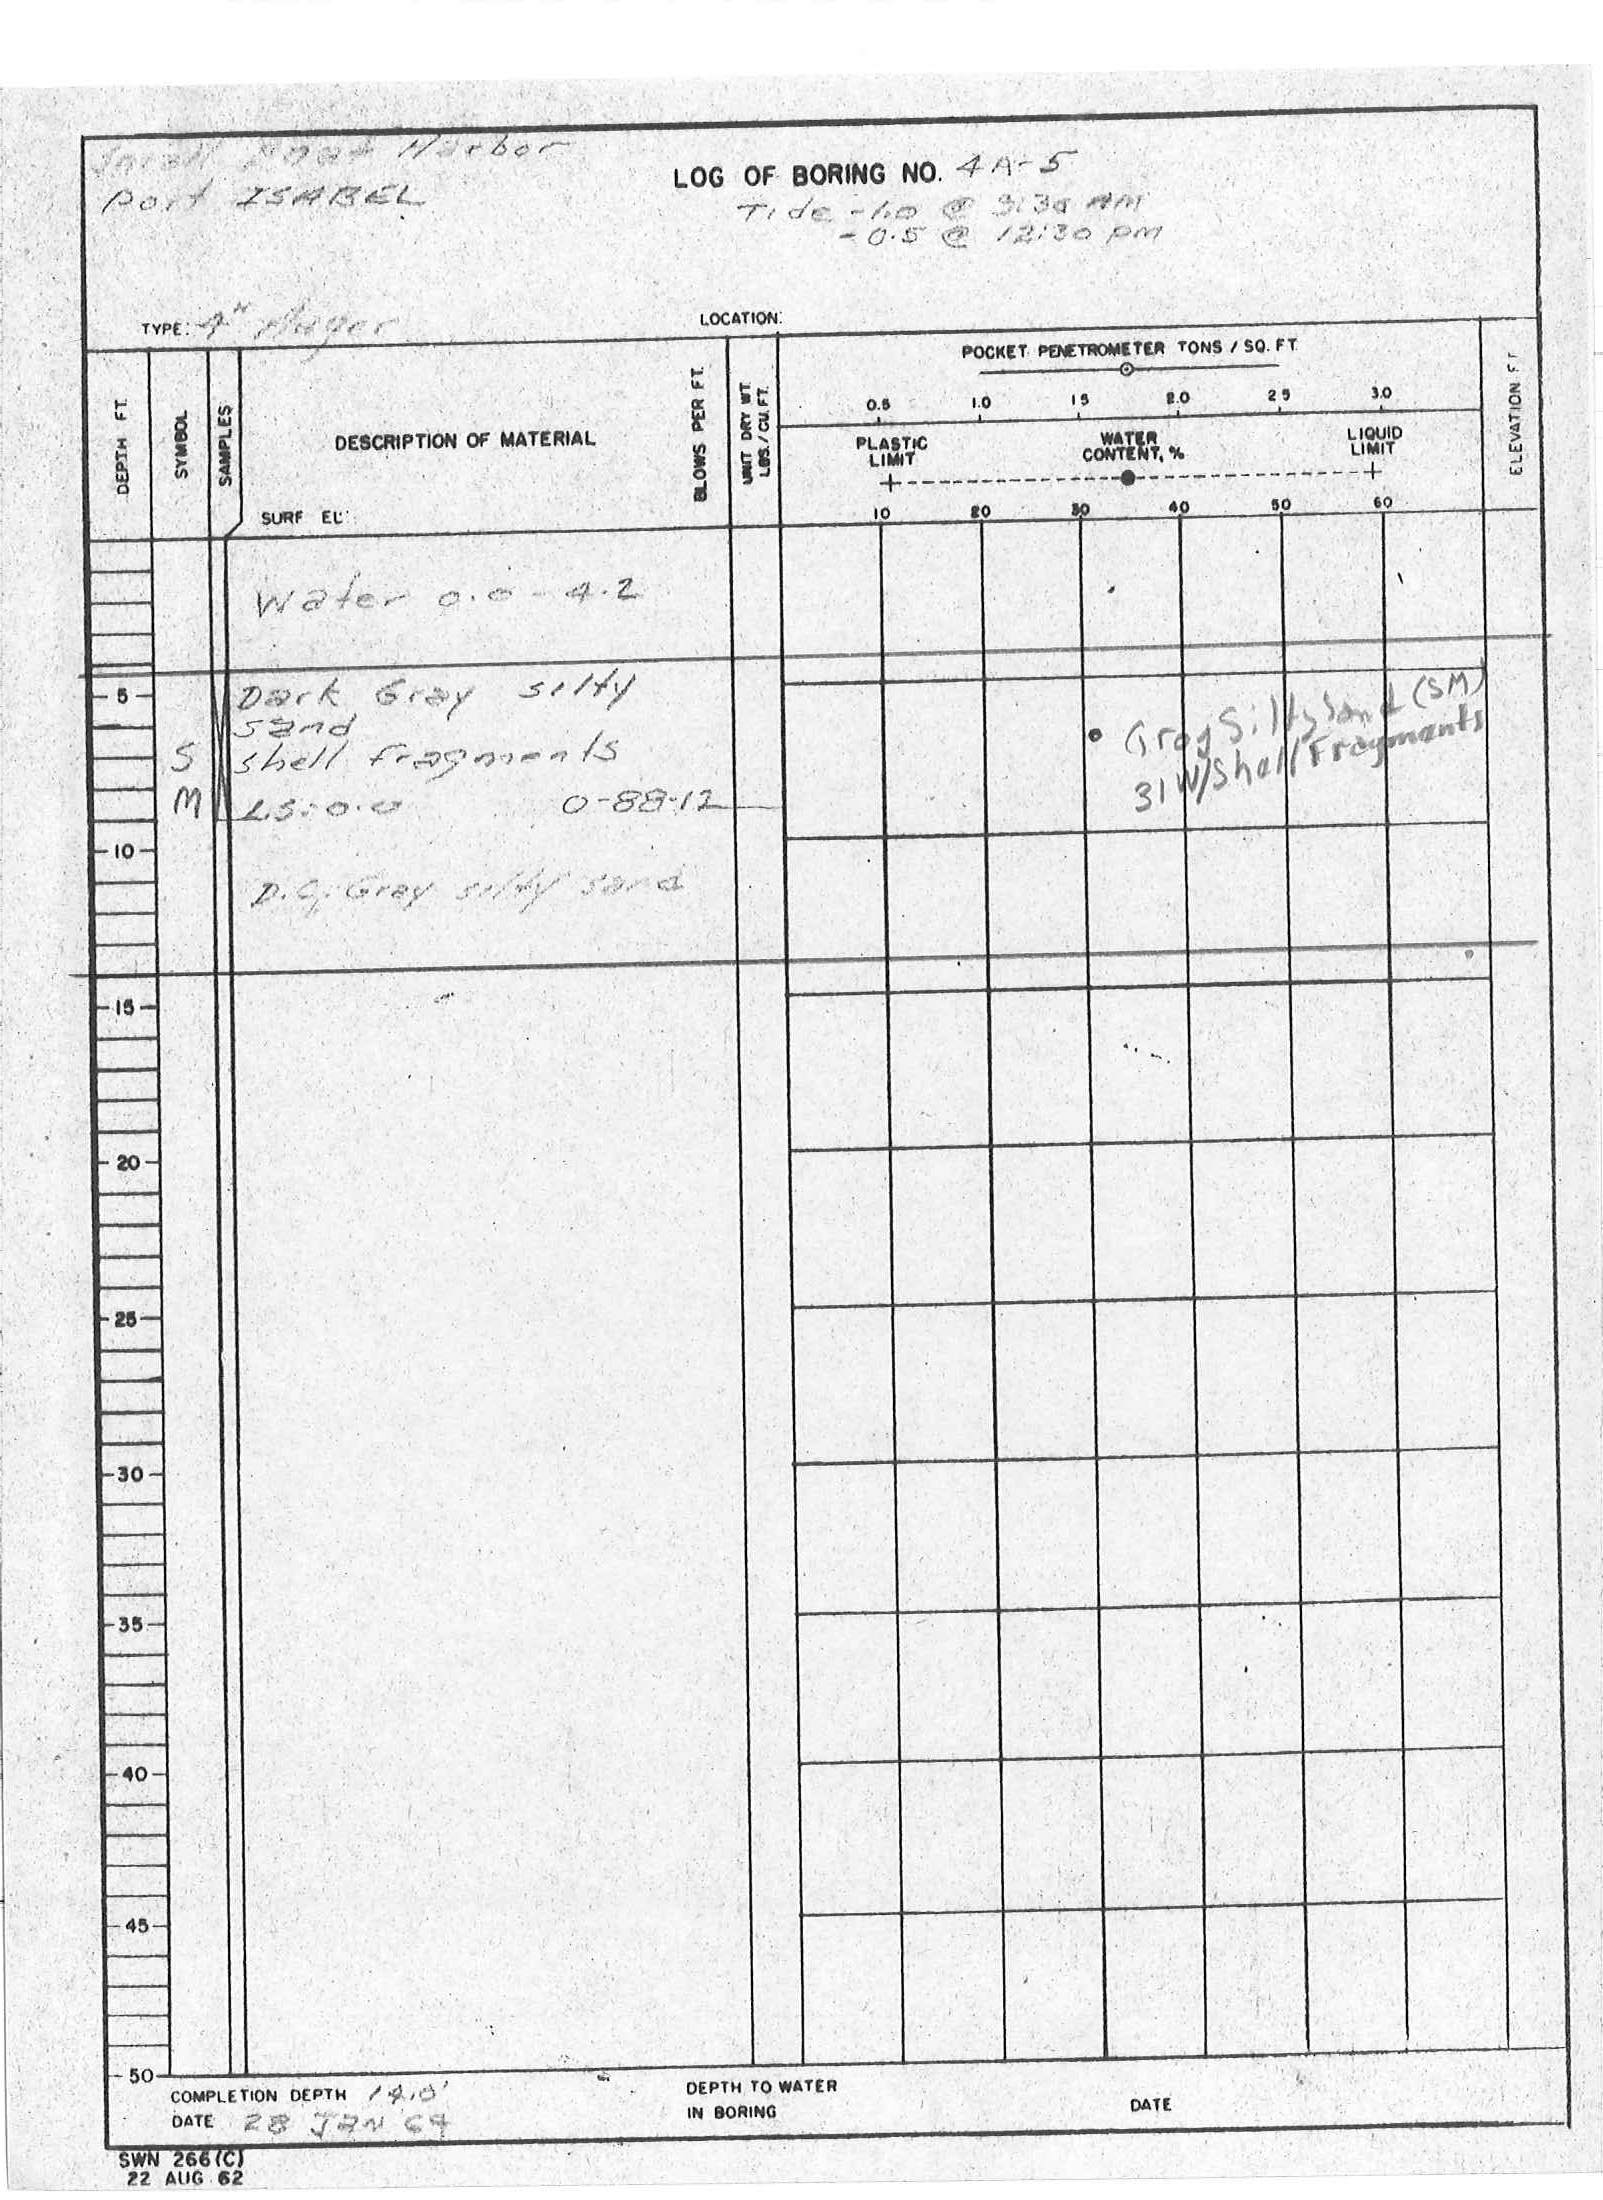 Small Boat Harbor
Port ISABEL
LOG OF BORING NO. 4A-5
Tide -1.0 @ 9:30 AM
-0.5 @ 12:30 pm
TYPE: 4" Auger
LOCATION:
DEPTH FT.
SYMBOL
SAMPLES
DESCRIPTION OF MATERIAL
SURF EL:
BLOWS PER FT.
UNIT DRY WT.
LBS./CU.FT.
POCKET PENETROMETER TONS / SQ. FT.
0.5 1.0 1 5 2.0 2 5 3.0
PLASTIC LIMIT
WATER CONTENT, %
LIQUID LIMIT
10 20 30 40 50 60
ELEVATION FT
Water 0.0 - 4.2
5
Dark Gray silty
sand
S shell fragments
M L.S: 0.0 0-88-12
Gray Silty Sand (SM)
31 W/Shell Fragments
10
D.G. Gray silty sand
15
20
25
30
35
40
45
50
COMPLETION DEPTH 14.0'
DATE 28 JAN 64
DEPTH TO WATER
IN BORING
DATE
SWN 266(C)
22 AUG 62